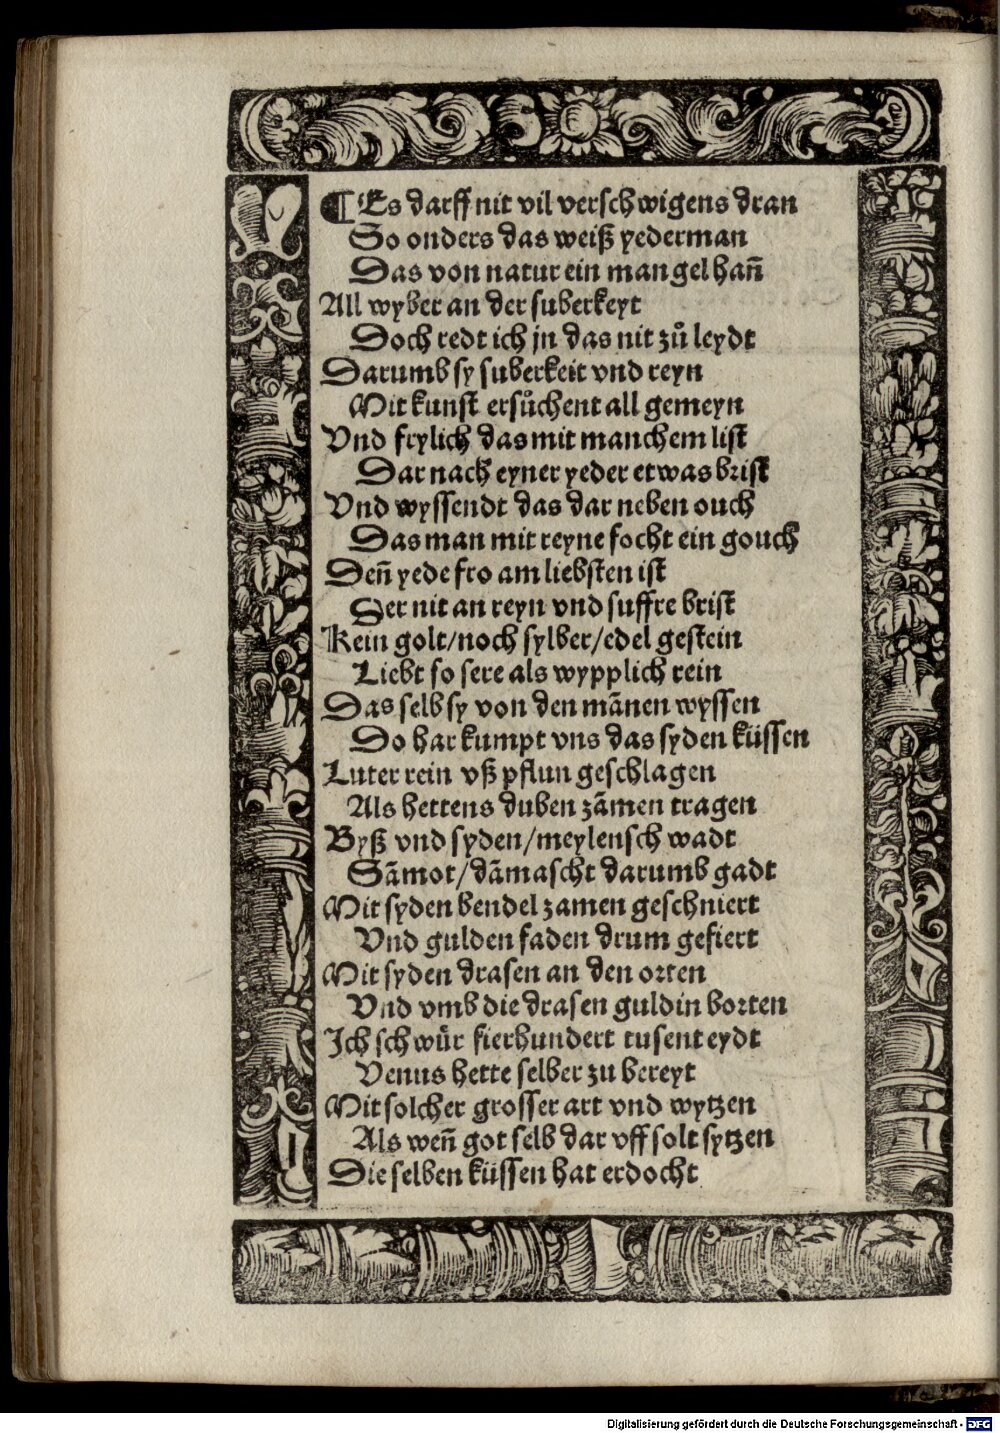 ¶ Es darff nit vil verschwigens dran
So onders das weiß yederman
Das von natur ein mangel hañ
All wyber an der suberkeyt
Doch redt ich jn das nit zů leydt
Darumb sy suberkeit vnd reyn
Mit kunst ersůchent all gemeyn
Vnd frylich das mit manchem list
Dar nach eyner yeder etwas brist
Vnd wyssendt das dar neben ouch
Das man mit reyne focht ein gouch
Deñ yede fro am liebsten ist
Der nit an reyn vnd suffre brist
Kein golt/noch sylber/edel gestein
Liebt so sere als wypplich rein
Das selb sy von den mãnen wyssen
Do har kumpt vns das syden küssen
Luter rein vß pflun geschlagen
Als hettens duben zãmen tragen
Byß vnd syden/meylensch wadt
Sãmot/dãmascht darumb gadt
Mit syden bendel zamen geschniert
Vnd gulden faden drum gefiert
Mit syden drasen an den orten
Vnd vmb die drasen guldin borten
Ich schwür fierhundert tusent eydt
Venus hette selber zu bereyt
Mit solcher grosser art vnd wytzen
Als weñ got selb dar vff solt sytzen
Die selben küssen hat erdocht
Digitalisierung gefördert durch die Deutsche Forschungsgemeinschaft - DFG